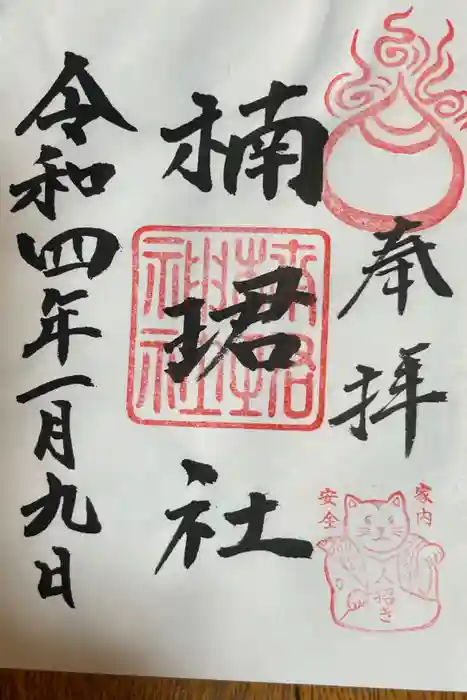 奉拝
楠珺社
楠珺
神社
令和四年一月九日
家内
安全
人招き